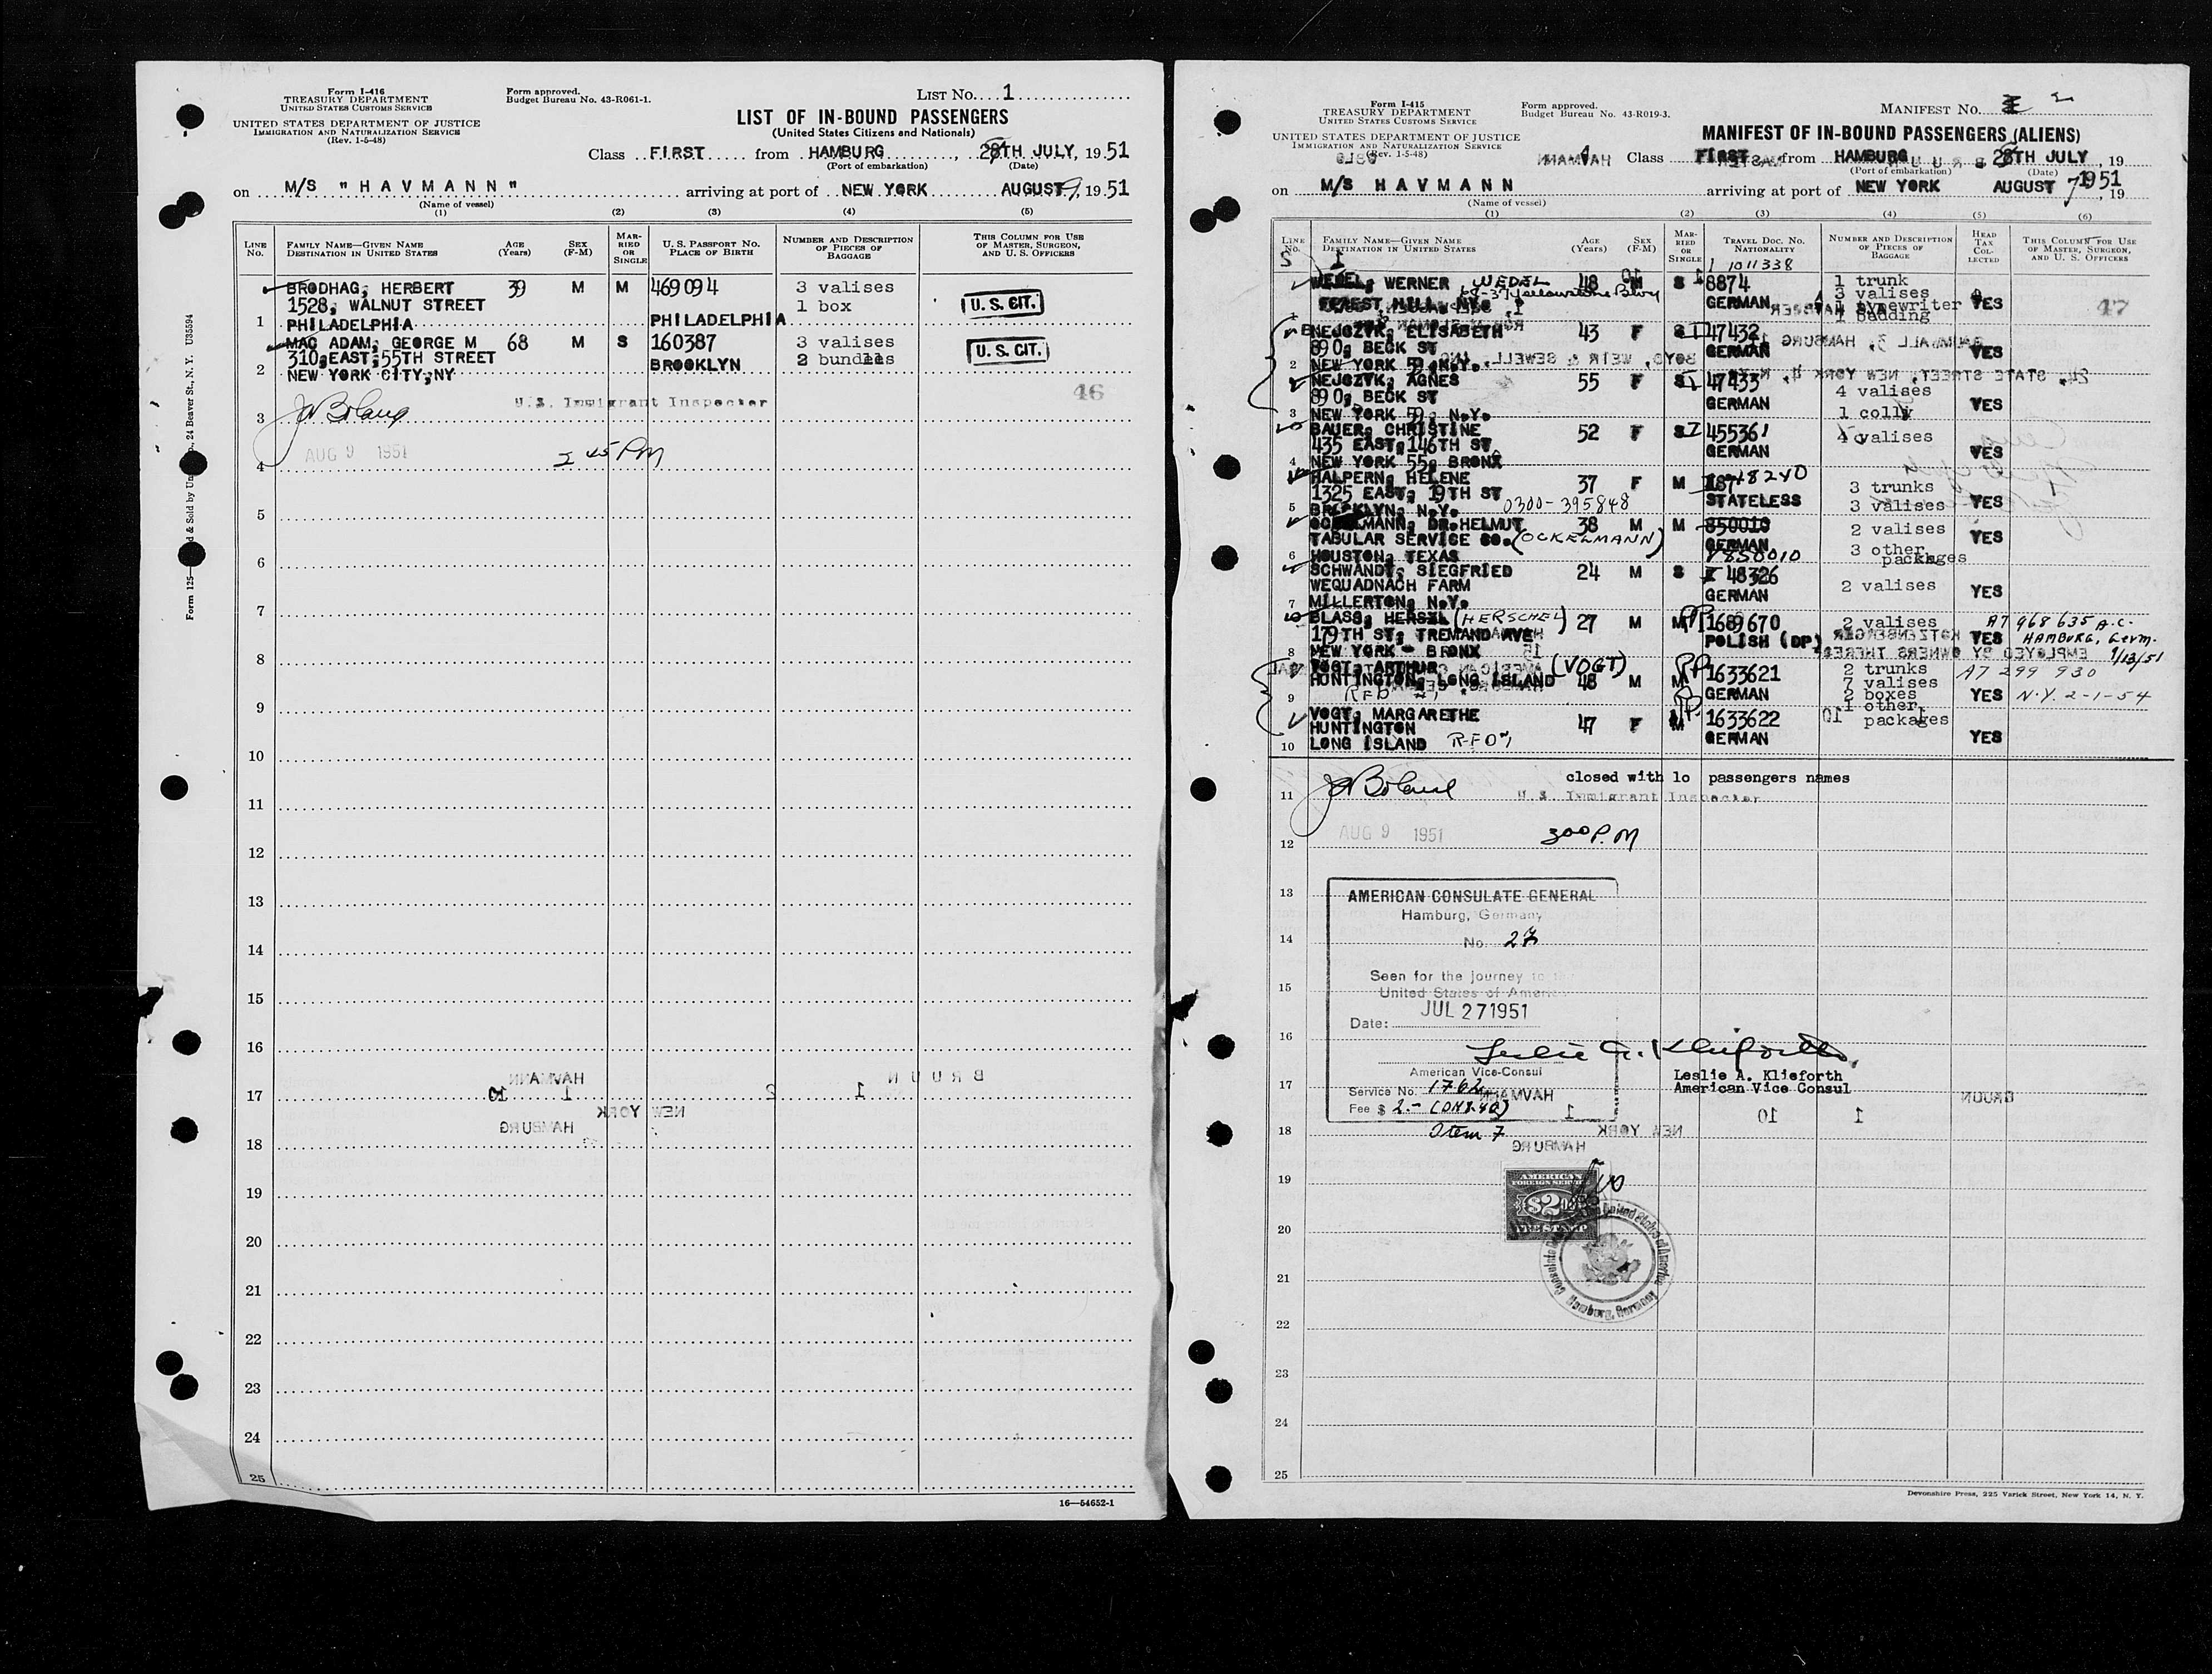 Form I-416
TREASURY DEPARTMENT
UNITED STATES CUSTOMS SERVICE
UNITED STATES DEPARTMENT OF JUSTICE
IMMIGRATION AND NATURALIZATION SERVICE
(Rev. 1-5-48)
Form approved.
Budget Bureau No. 43-R061-1.
LIST NO. 1
LIST OF IN-BOUND PASSENGERS
(United States Citizens and Nationals)
Class FIRST from HAMBURG, 28TH JULY, 1951
(Port of embarkation) (Date)
on M/S "HAVMANN" arriving at port of NEW YORK AUGUST 9, 1951
(Name of vessel)
(1) (2) (3) (4) (5)
LINE No. FAMILY NAME—GIVEN NAME DESTINATION IN UNITED STATES AGE (Years) SEX (F-M) MARRIED OR SINGLE U. S. PASSPORT NO. PLACE OF BIRTH NUMBER AND DESCRIPTION OF PIECES OF BAGGAGE THIS COLUMN FOR USE OF MASTER, SURGEON, AND U. S. OFFICERS
BRODHAG, HERBERT 39 M M 469094 3 valises
1528, WALNUT STREET 1 box U. S. CIT.
1 PHILADELPHIA PHILADELPHIA
MAC ADAM, GEORGE M 68 M S 160387 3 valises
310, EAST, 55TH STREET BROOKLYN 2 bundles U. S. CIT.
2 NEW YORK CITY, NY
46
U.S. Immigrant Inspector
3
AUG 9 1951 2 45 PM
4
5
6
7
8
9
10
11
12
13
14
15
16
17
18
19
20
21
22
23
24
25
16—54652-1
Form I-415
TREASURY DEPARTMENT
UNITED STATES CUSTOMS SERVICE
UNITED STATES DEPARTMENT OF JUSTICE
IMMIGRATION AND NATURALIZATION SERVICE
(Rev. 1-5-48)
Form approved.
Budget Bureau No. 43-R019-3.
MANIFEST NO. 2
MANIFEST OF IN-BOUND PASSENGERS (ALIENS)
Class FIRST from HAMBURG 28TH JULY, 19
(Port of embarkation) (Date)
on M/S HAVMANN arriving at port of NEW YORK AUGUST 7, 1951
(Name of vessel)
(1) (2) (3) (4) (5) (6)
LINE No. FAMILY NAME—GIVEN NAME DESTINATION IN UNITED STATES AGE (Years) SEX (F-M) MARRIED OR SINGLE TRAVEL DOC. NO. NATIONALITY NUMBER AND DESCRIPTION OF PIECES OF BAGGAGE HEAD TAX COLLECTED THIS COLUMN FOR USE OF MASTER, SURGEON, AND U. S. OFFICERS
1011338
WEDEL, WERNER WEDEL 48 M S 8874 1 trunk
68-37 Yellowstone Blvy 3 valises
FOREST HILL, NY. GERMAN 1 typewriter YES 47
1 1 bedding
NEJCZYK, ELISABETH 43 F S 47432
890, BECK ST GERMAN YES
2 NEW YORK 59, N.Y.
NEJCZYK, AGNES 55 F S 47433
890, BECK ST GERMAN 4 valises YES
3 NEW YORK 59, N.Y. 1 colly
BAUER, CHRISTINE 52 F S 455361 4 valises
435 EAST, 146TH ST GERMAN YES
4 NEW YORK 55, BRONX
HALPERN, HELENE 37 F M 3 trunks
1325 EAST, 19TH ST STATELESS 3 valises YES
5 BROOKLYN, N.Y. 0300-395848
OCKELMANN, DR. HELMUT 38 M M 850010 2 valises
TABULAR SERVICE CO. (OCKELMANN) GERMAN 3 other packages YES
6 HOUSTON, TEXAS 850010
SCHWANDT, SIEGFRIED 24 M S I 48326
WEQUADNACH FARM GERMAN 2 valises YES
7 MILLERTON, N.Y.
BLASS, HERSZL (HERSCHEL) 27 M M 1689670 2 valises A7 968 635 A.C.
179TH ST, TREMAND AVE POLISH (DP) YES HAMBURG, Germ.
8 NEW YORK - BRONX 7/13/51
VOGT, ARTHUR (VOGT) PP 1633621 2 trunks A7 299 930
HUNTINGTON, LONG ISLAND 48 M M 7 valises
9 RFD #1 GERMAN 2 boxes YES N.Y. 2-1-54
1 other packages
VOGT, MARGARETHE 47 F M 1633622
HUNTINGTON GERMAN YES
10 LONG ISLAND
closed with 10 passengers names
11 U.S. Immigrant Inspector
AUG 9 1951 3 00 P.M
12
13
AMERICAN CONSULATE GENERAL
Hamburg, Germany
14
No. 27
Seen for the journey to the
15
United States of America
JUL 27 1951
Date:
16
Leslie A. Klieforth
American Vice-Consul
Leslie A. Klieforth
American Vice Consul
17
Service No. 1762
Fee $ 2.-
18
Item 7
19
AMERICAN
FOREIGN SERVICE
$2
FEE STAMP
20
United States of America
Hamburg, Germany
21
22
23
24
25
Devonshire Press, 225 Varick Street, New York 14, N. Y.